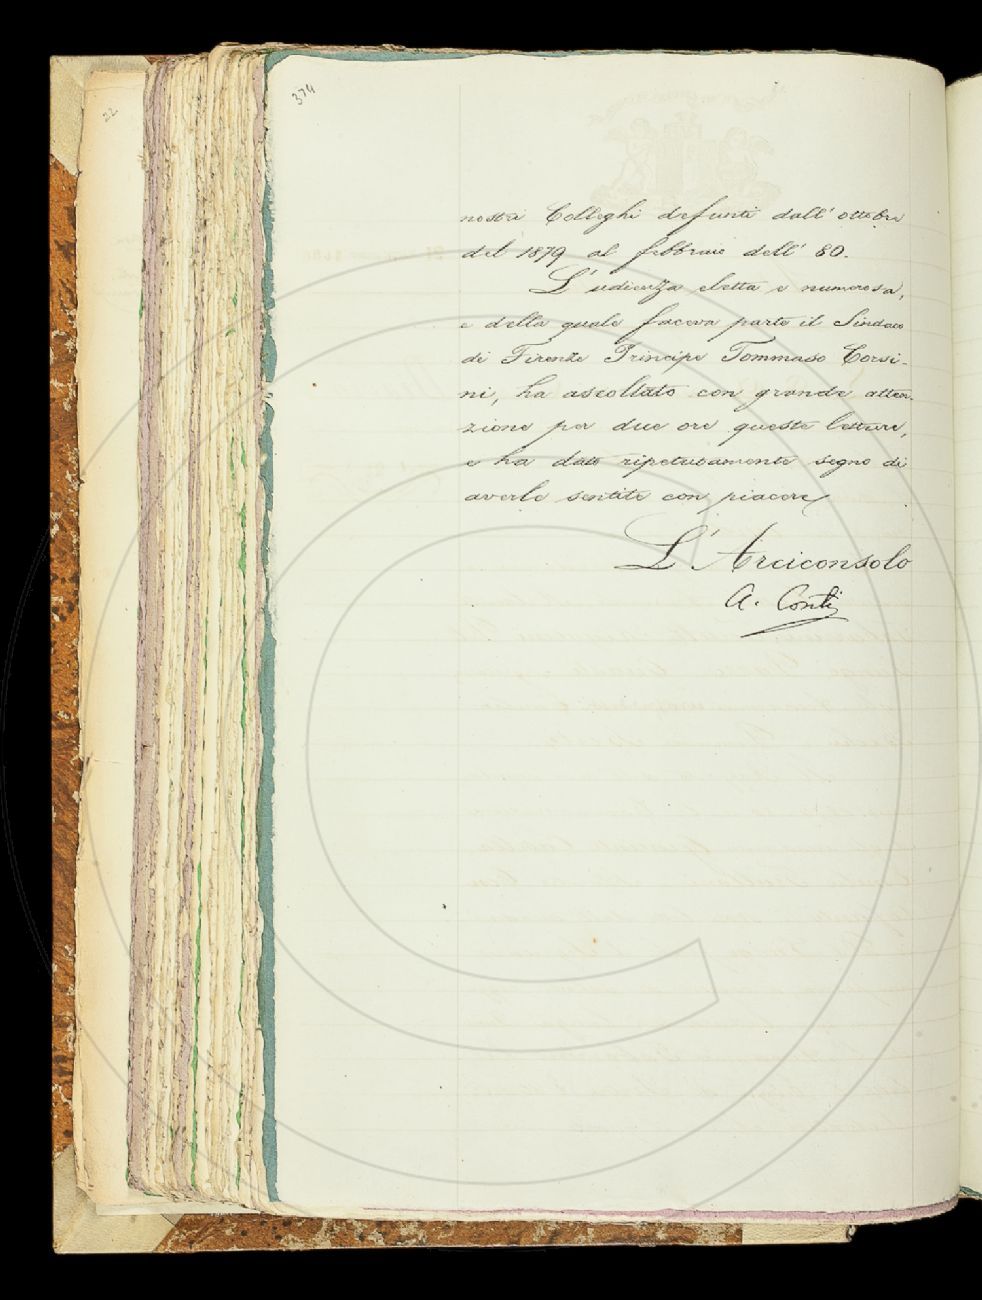 22
374
nostri Colleghi defunti dall'ottobre
del 1879 al febbraio dell'80.
L'udienza eletta e numerosa,
e della quale faceva parte il Sindaco
di Firenze Principe Tommaso Corsi-
ni, ha ascoltato con grande atten-
zione per due ore queste letture,
e ha dato ripetutamente segno di
averle sentite con piacere
L'Arciconsolo
A. Conti